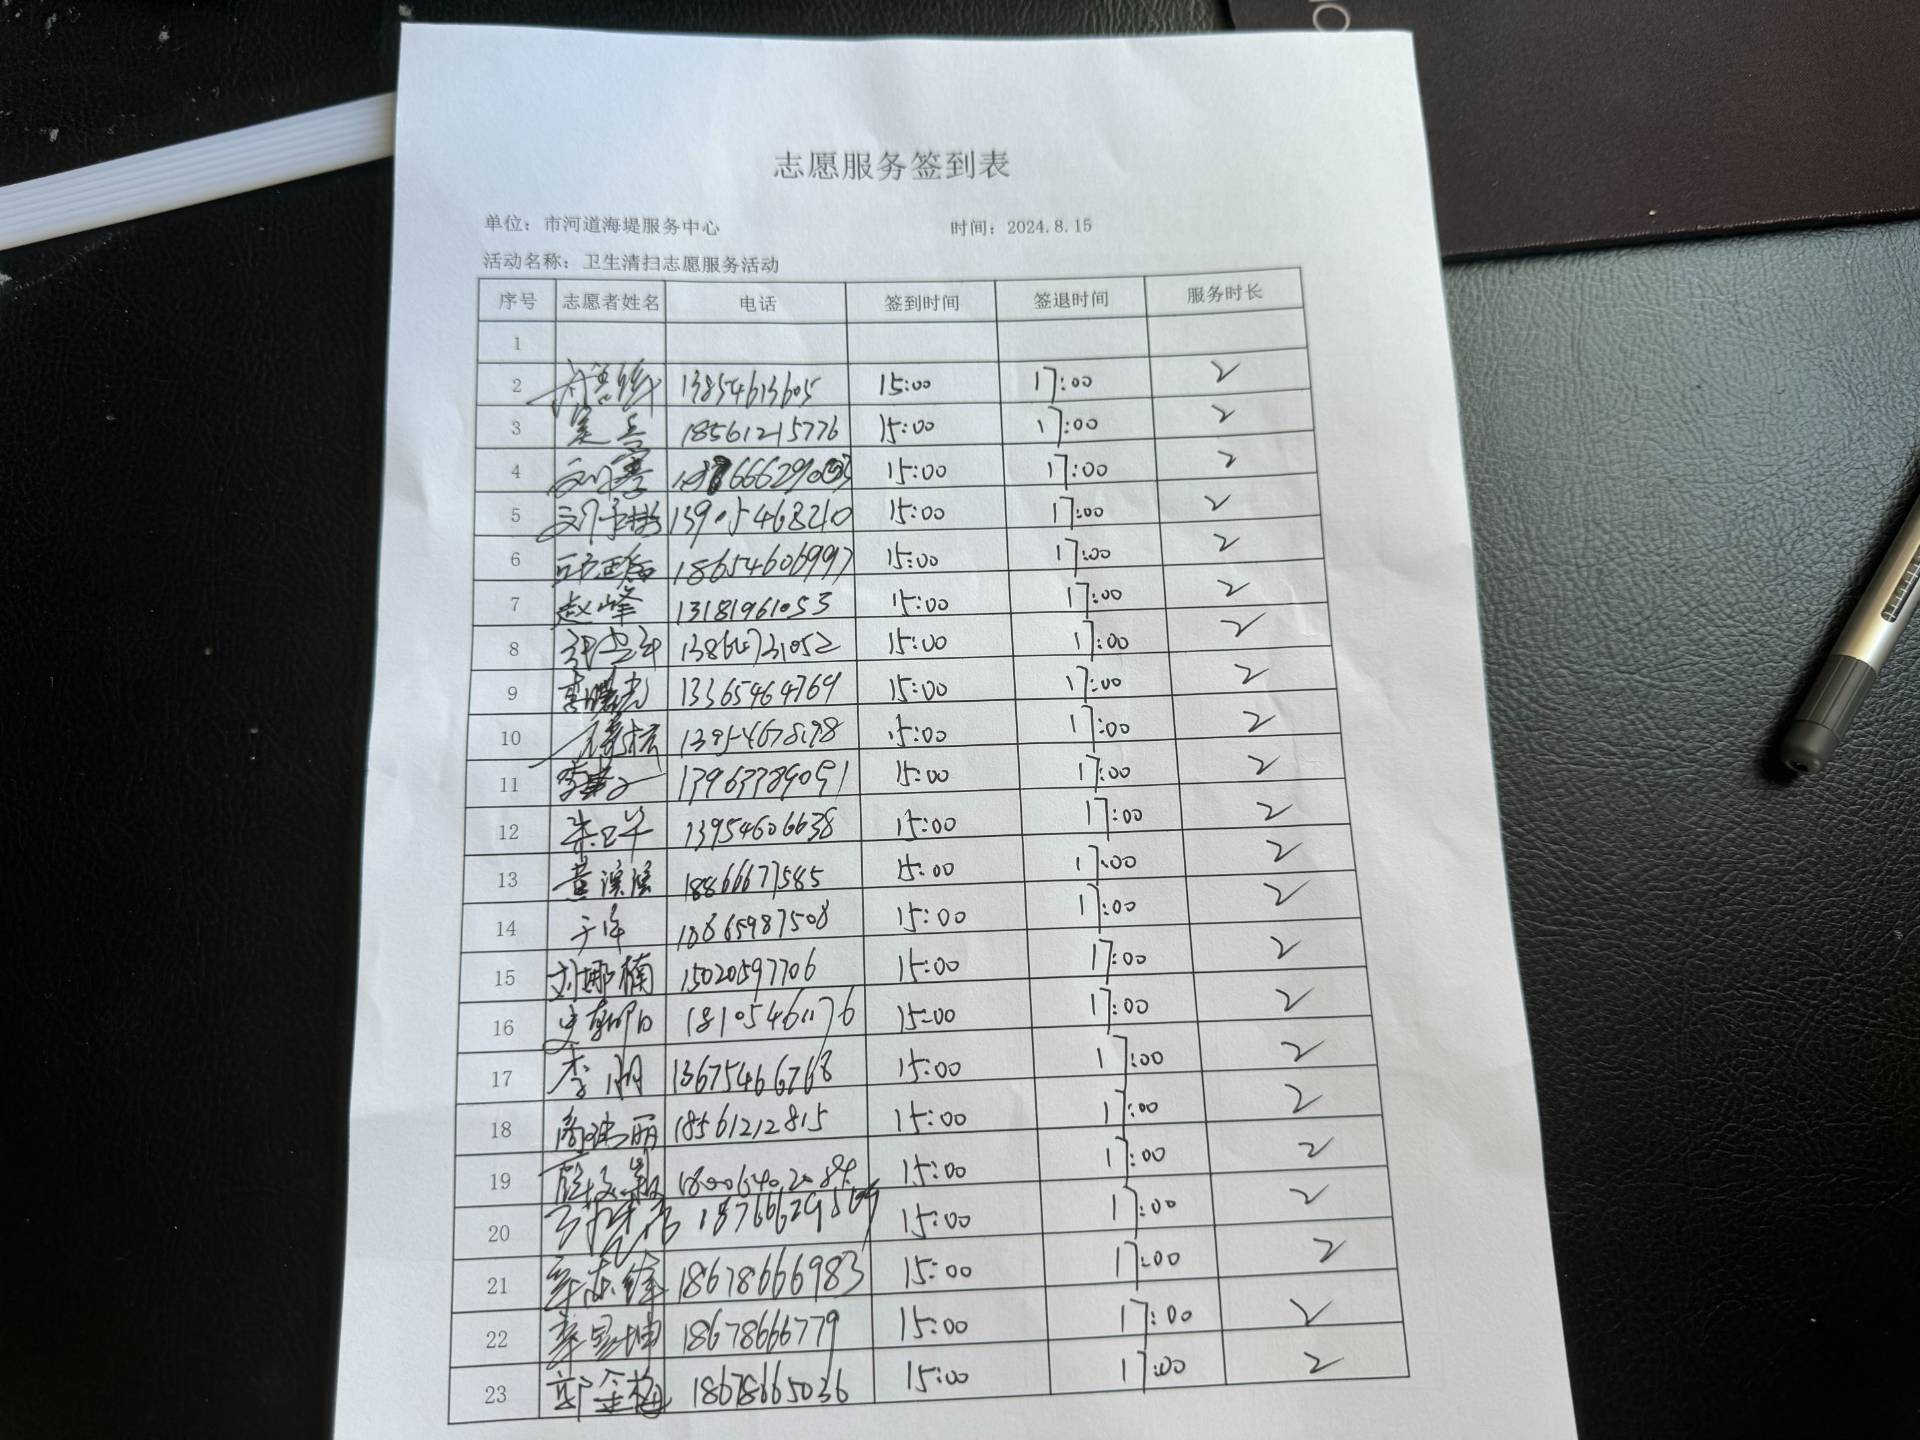 志愿服务签到表
单位：市河道海堤服务中心 时间：2024.8.15
活动名称：卫生清扫志愿服务活动
序号 志愿者姓名 电话 签到时间 签退时间 服务时长
1
2 13854613605 15:00 17:00 2
3 吴兵 18561215776 15:00 17:00 2
4 15:00 17:00 2
5 13905468210 15:00 17:00 2
6 18654606997 15:00 17:00 2
7 赵峰 13181961053 15:00 17:00 2
8 15:00 17:00 2
9 李曙光 13365464769 15:00 17:00 2
10 13954678198 15:00 17:00 2
11 13963789091 15:00 17:00 2
12 朱卫华 13954606638 15:00 17:00 2
13 黄溪溪 18866677585 15:00 17:00 2
14 18865987508 15:00 17:00 2
15 刘娜楠 15020597706 15:00 17:00 2
16 18105461176 15:00 17:00 2
17 李朋 13675466768 15:00 17:00 2
18 18561212815 15:00 17:00 2
19 15:00 17:00 2
20 15:00 17:00 2
21 18678666983 15:00 17:00 2
22 18678666779 15:00 17:00 2
23 郭金梅 18678665036 15:00 17:00 2